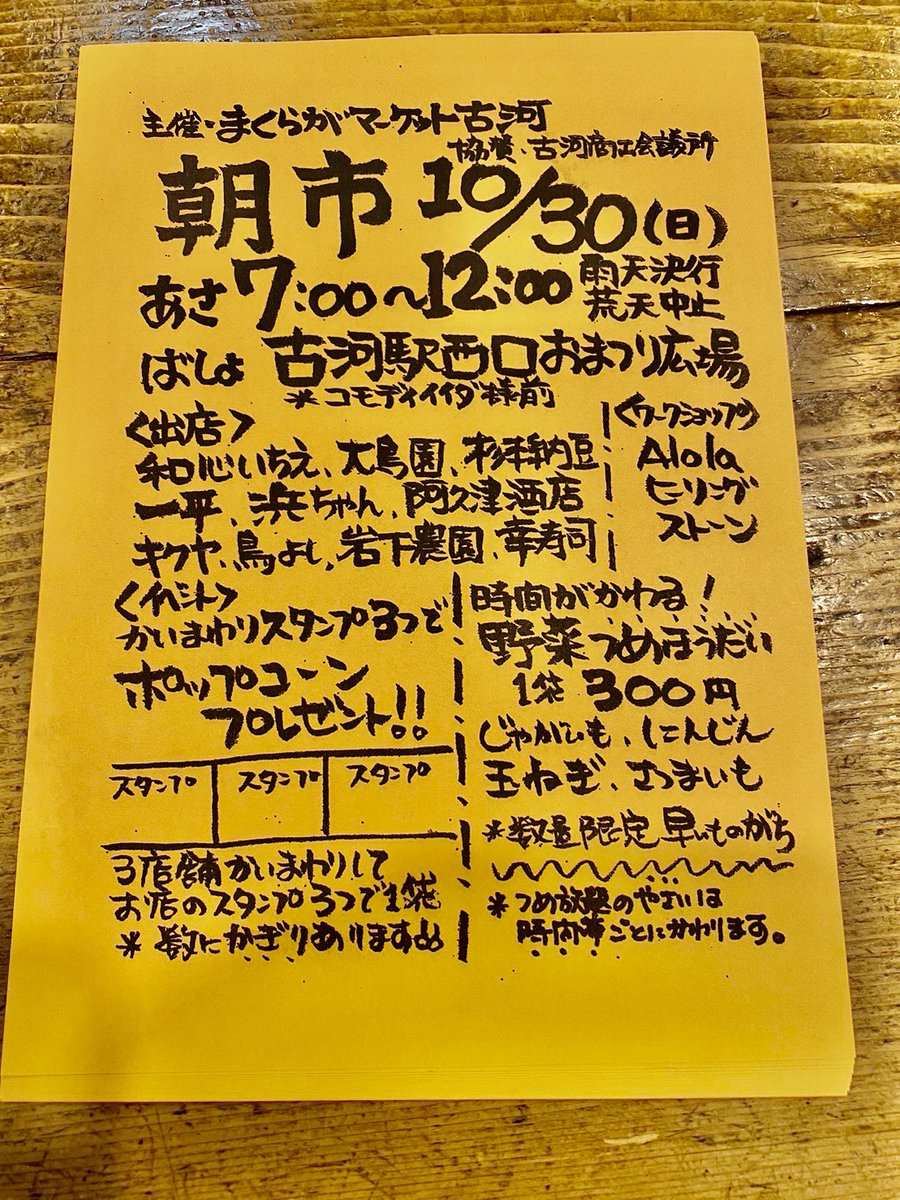 主催・まくらがマーケット古河
協賛、古河商工会議所
朝市 10/30(日)
あさ 7:00〜12:00 雨天決行
荒天中止
ばしょ 古河駅西口おまつり広場
*コモディイイダ様前
<出店>
和心いちえ、大鳥園、杉本納豆
一平、浜ちゃん、阿久津酒店
キクヤ、鳥よし、岩下農園、幸寿司
<ワークショップ>
Alola
ヒーリング
ストーン
<イベント>
かいまわりスタンプ3つで
ポップコーン
プレゼント!!
スタンプ スタンプ スタンプ
3店舗かいまわりして
お店のスタンプ3つで1袋
*数にかぎりあります
時間がかわる!
野菜つめほうだい
1袋 300円
じゃがいも、にんじん
玉ねぎ、さつまいも
*数量限定 早いものがち
*つめ放題のやさいは
時間帯ごとにかわります。